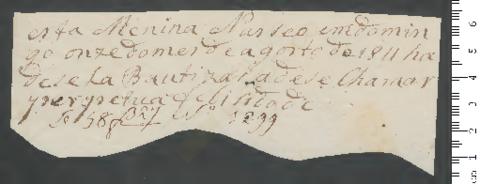 esta Menina Nasceo em domin
go onze do mes de agosto de 1811 ha
dese la Bautizar a dese Chamar
perpetua felisidade
1299